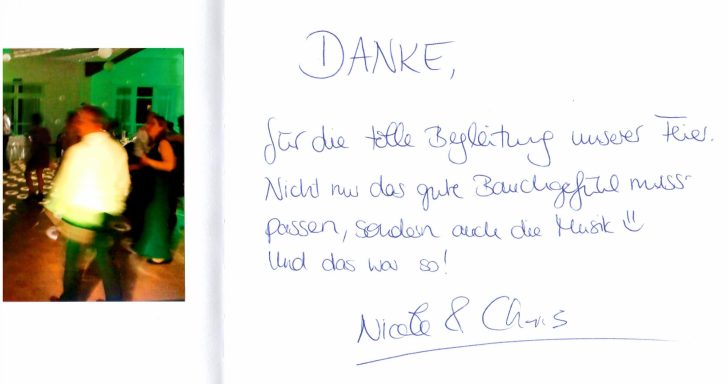 DANKE,
für die tolle Begleitung unserer Feier.
Nicht nur das gute Bauchgefühl muss
passen, sondern auch die Musik
Und das war so!
Nicole & Chris